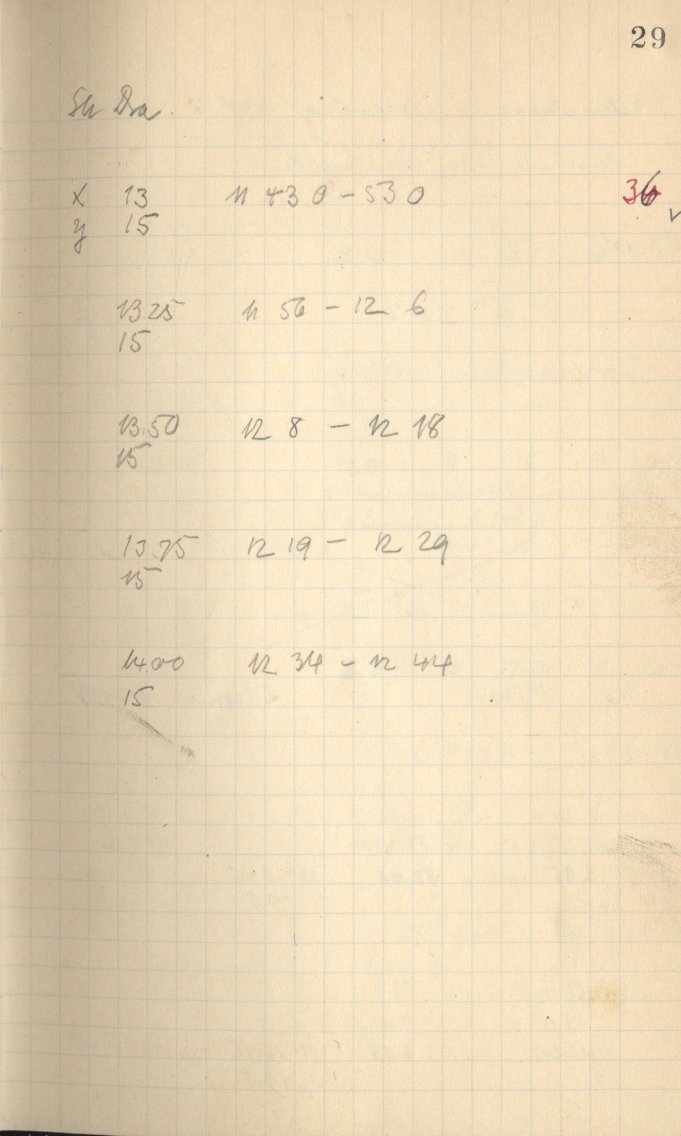 29
Sh Dra.
x 13 11 43 0 - 53 0 36
y 15
13.25 11 56 - 12 6
15
13.50 12 8 - 12 18
15
13.75 12 19 - 12 29
15
14.00 12 34 - 12 44
15